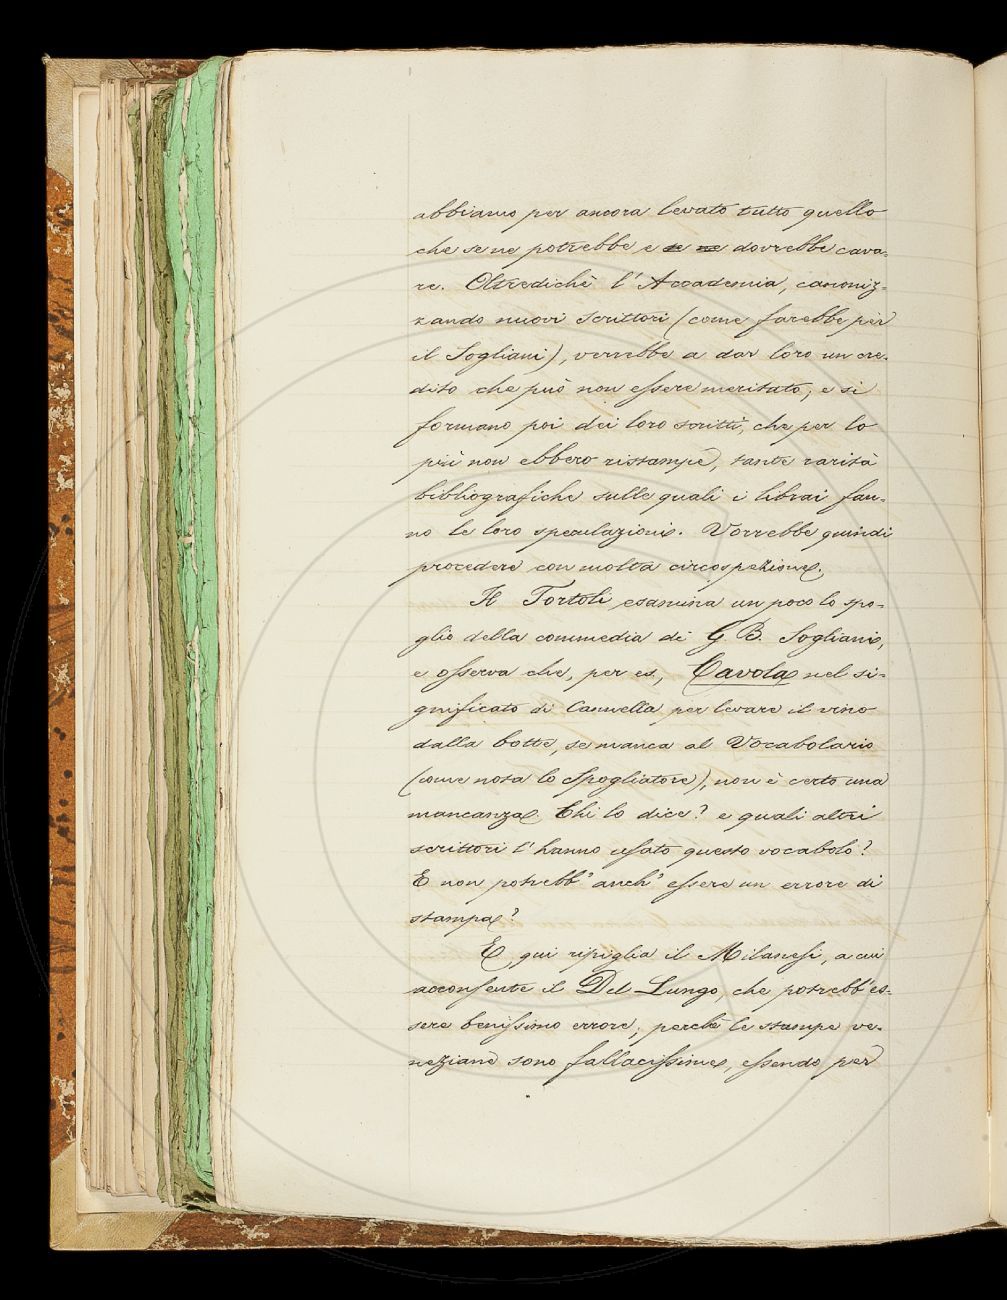 abbiamo per ancora levato tutto quello
che se ne potrebbe e se ne dovrebbe cava-
re. Oltredichè l'Accademia, canoniz-
zando nuovi scrittori (come farebbe per
il Sogliani), verrebbe a dar loro un cre-
dito che può non essere meritato; e si
formano poi dei loro scritti, che per lo
più non ebbero ristampe, tante rarità
bibliografiche sulle quali i librai fan-
no le loro speculazioni. Vorrebbe quindi
procedere con molta circospezione.
Il Tortoli esamina un poco lo spo-
glio della commedia di G. B. Sogliani,
e osserva che, per es., Cavola nel si-
gnificato di Cannella per levare il vino
dalla botte, se manca al Vocabolario
(come nota lo Spogliatore), non è certo una
mancanza. Chi lo dice? e quali altri
scrittori l'hanno usato questo vocabolo?
E non potrebb'anch'essere un errore di
stampa?
E qui ripiglia il Milanesi, a cui
acconsente il Del Lungo, che potrebb'es-
sere benissimo errore; perchè le stampe ve-
neziane sono fallacissime, essendo per